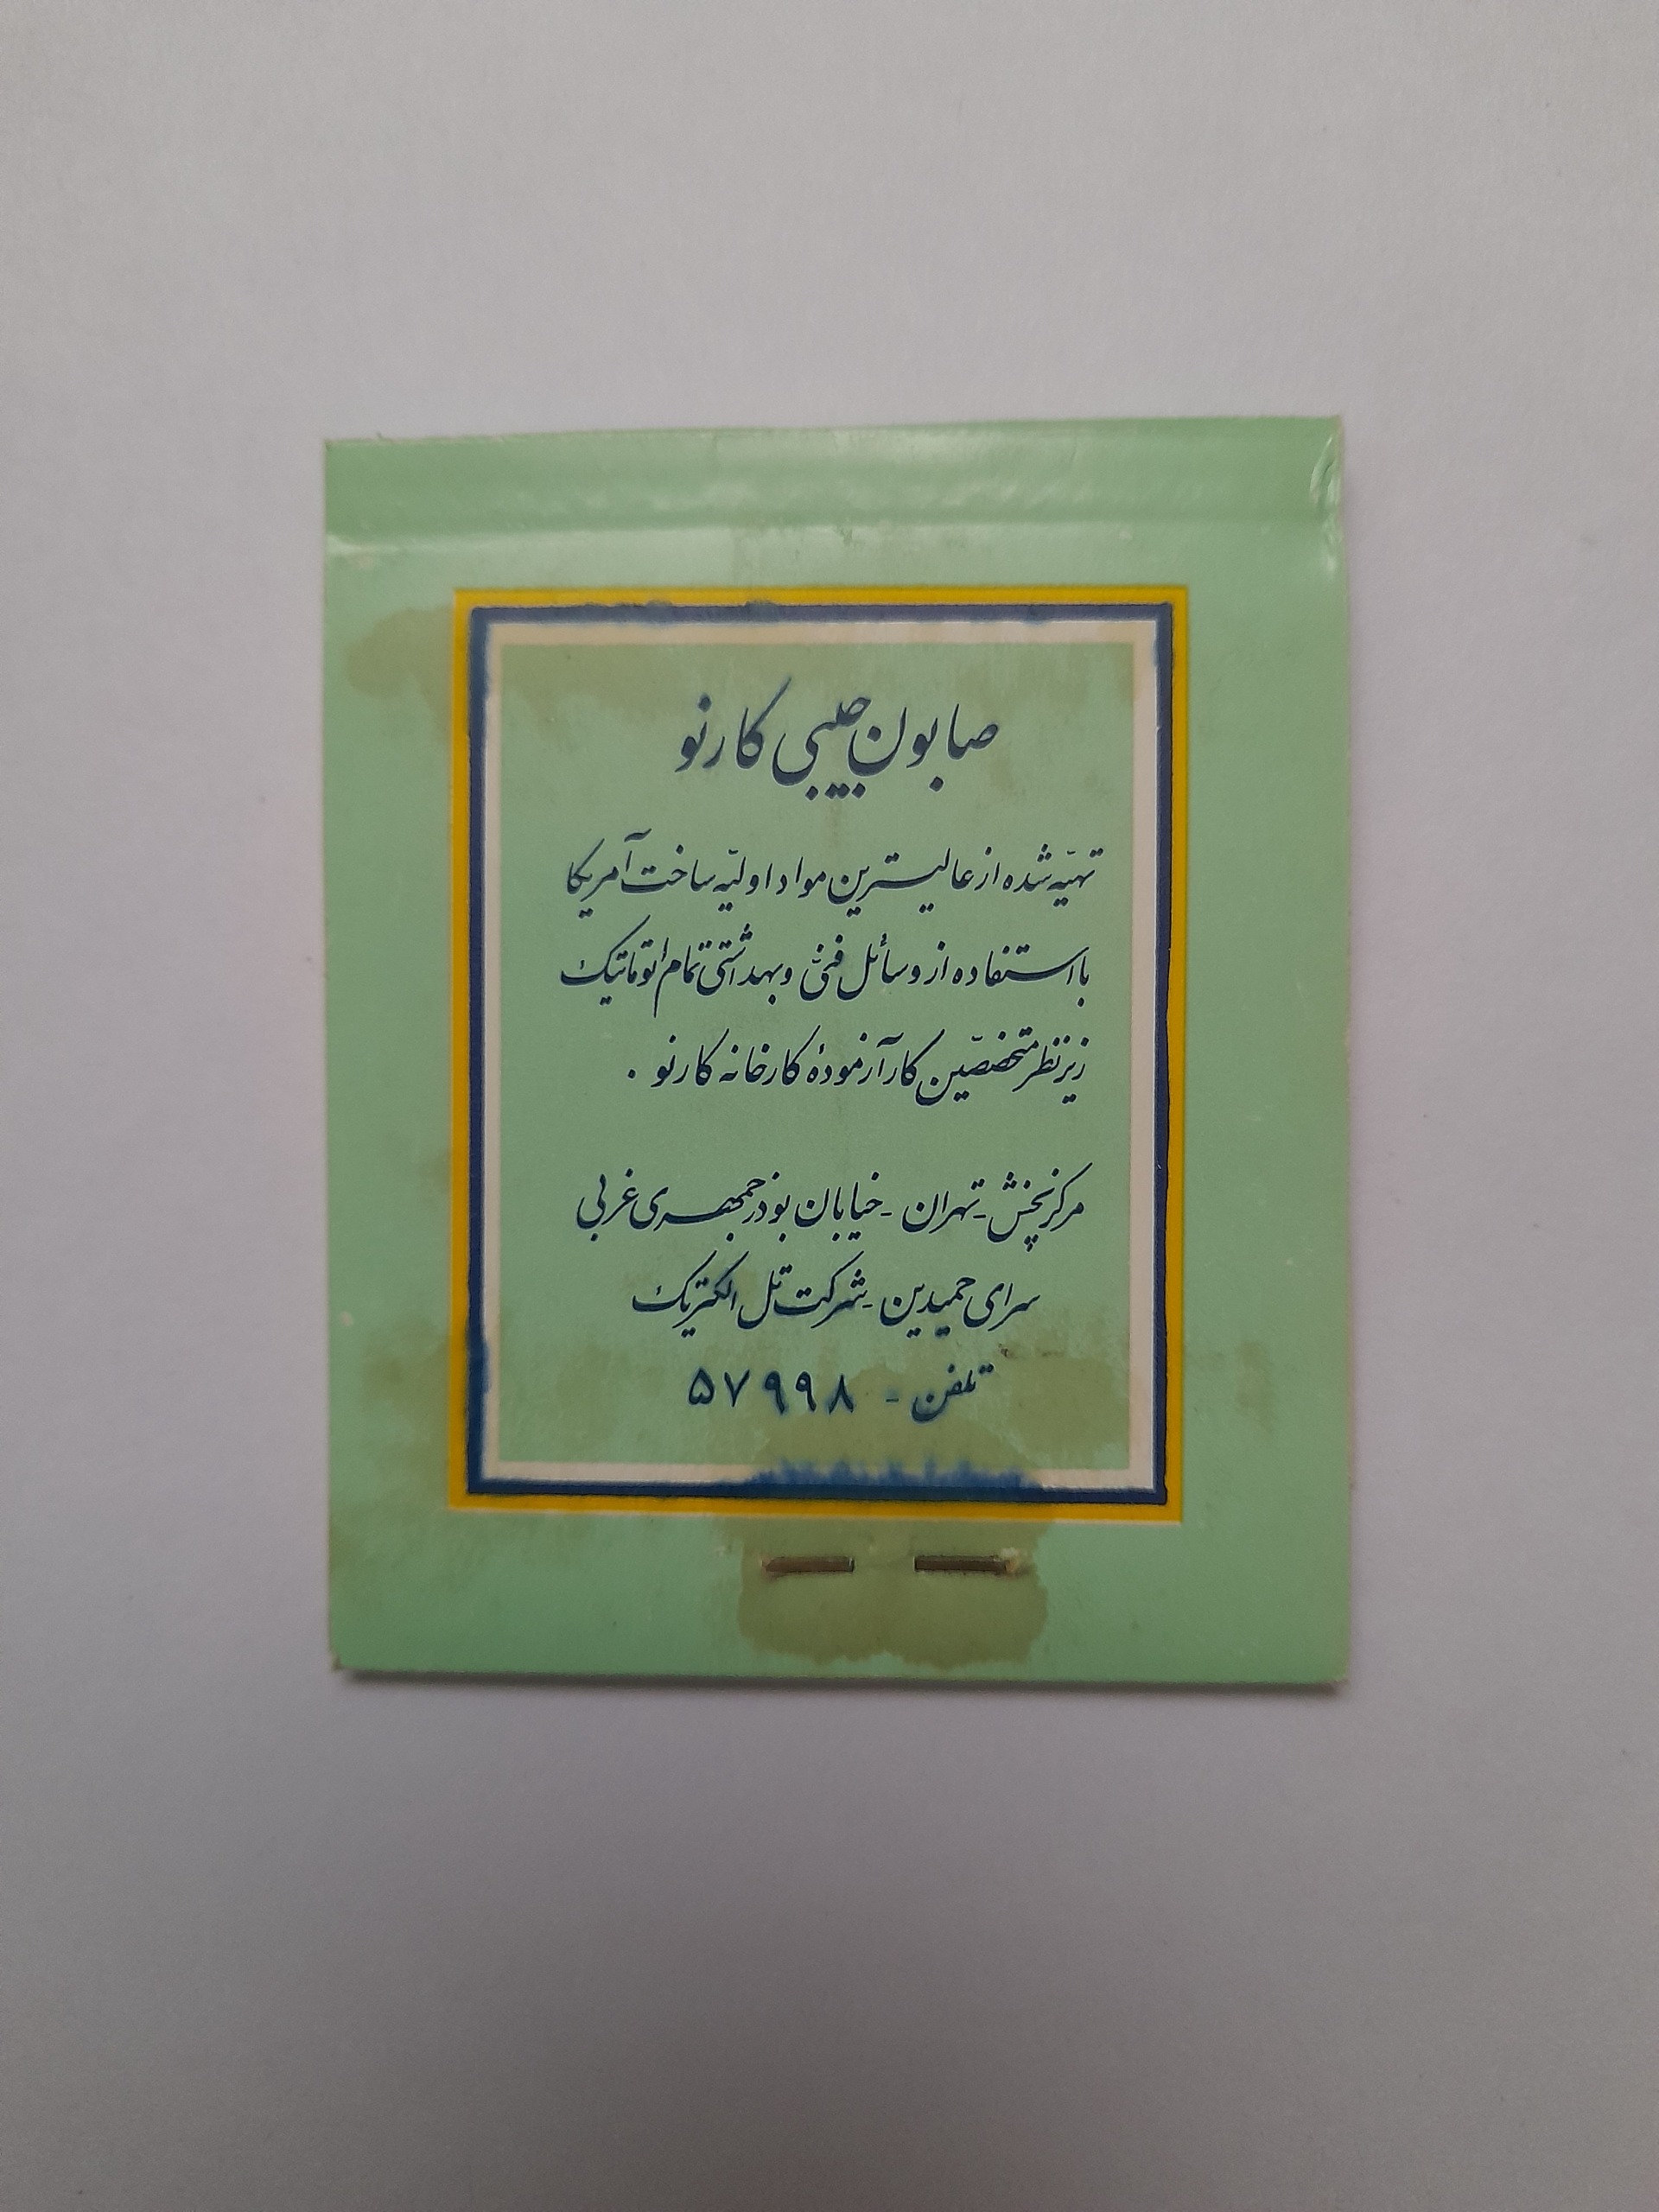 صابون جیبی کارنو
تهیّه شده از عالیترین مواد اولیّه ساخت آمریکا
با استفاده از وسائل فنّی و بهداشتی تمام اتوماتیک
زیر نظر متخصّصین کارآزمودهٔ کارخانه کارنو .
مرکز پخش - تهران - خیابان بوذرجمهری غربی
سرای حمیدین - شرکت تل الکتریک
تلفن - ۵۷۹۹۸